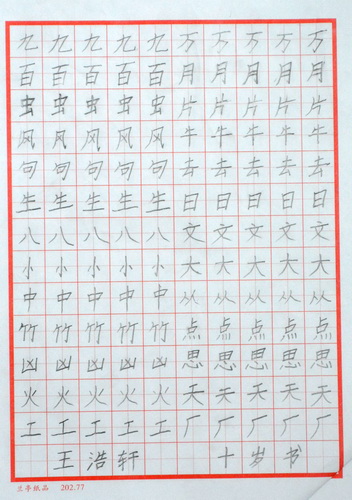 九九九九九万万万万万
百百百百百月月月月月
虫虫虫虫虫片片片片片
风风风风风牛牛牛牛牛
句句句句句去去去去去
生生生生生日日日日日
八八八八八文文文文文
小小小小小大大大大大
中中中中中从从从从从
竹竹竹竹竹点点点点点
凶凶凶凶凶思思思思思
火火火火火天天天天天
工工工工工厂厂厂厂厂
王浩轩 十岁书
兰亭纸品 202.77